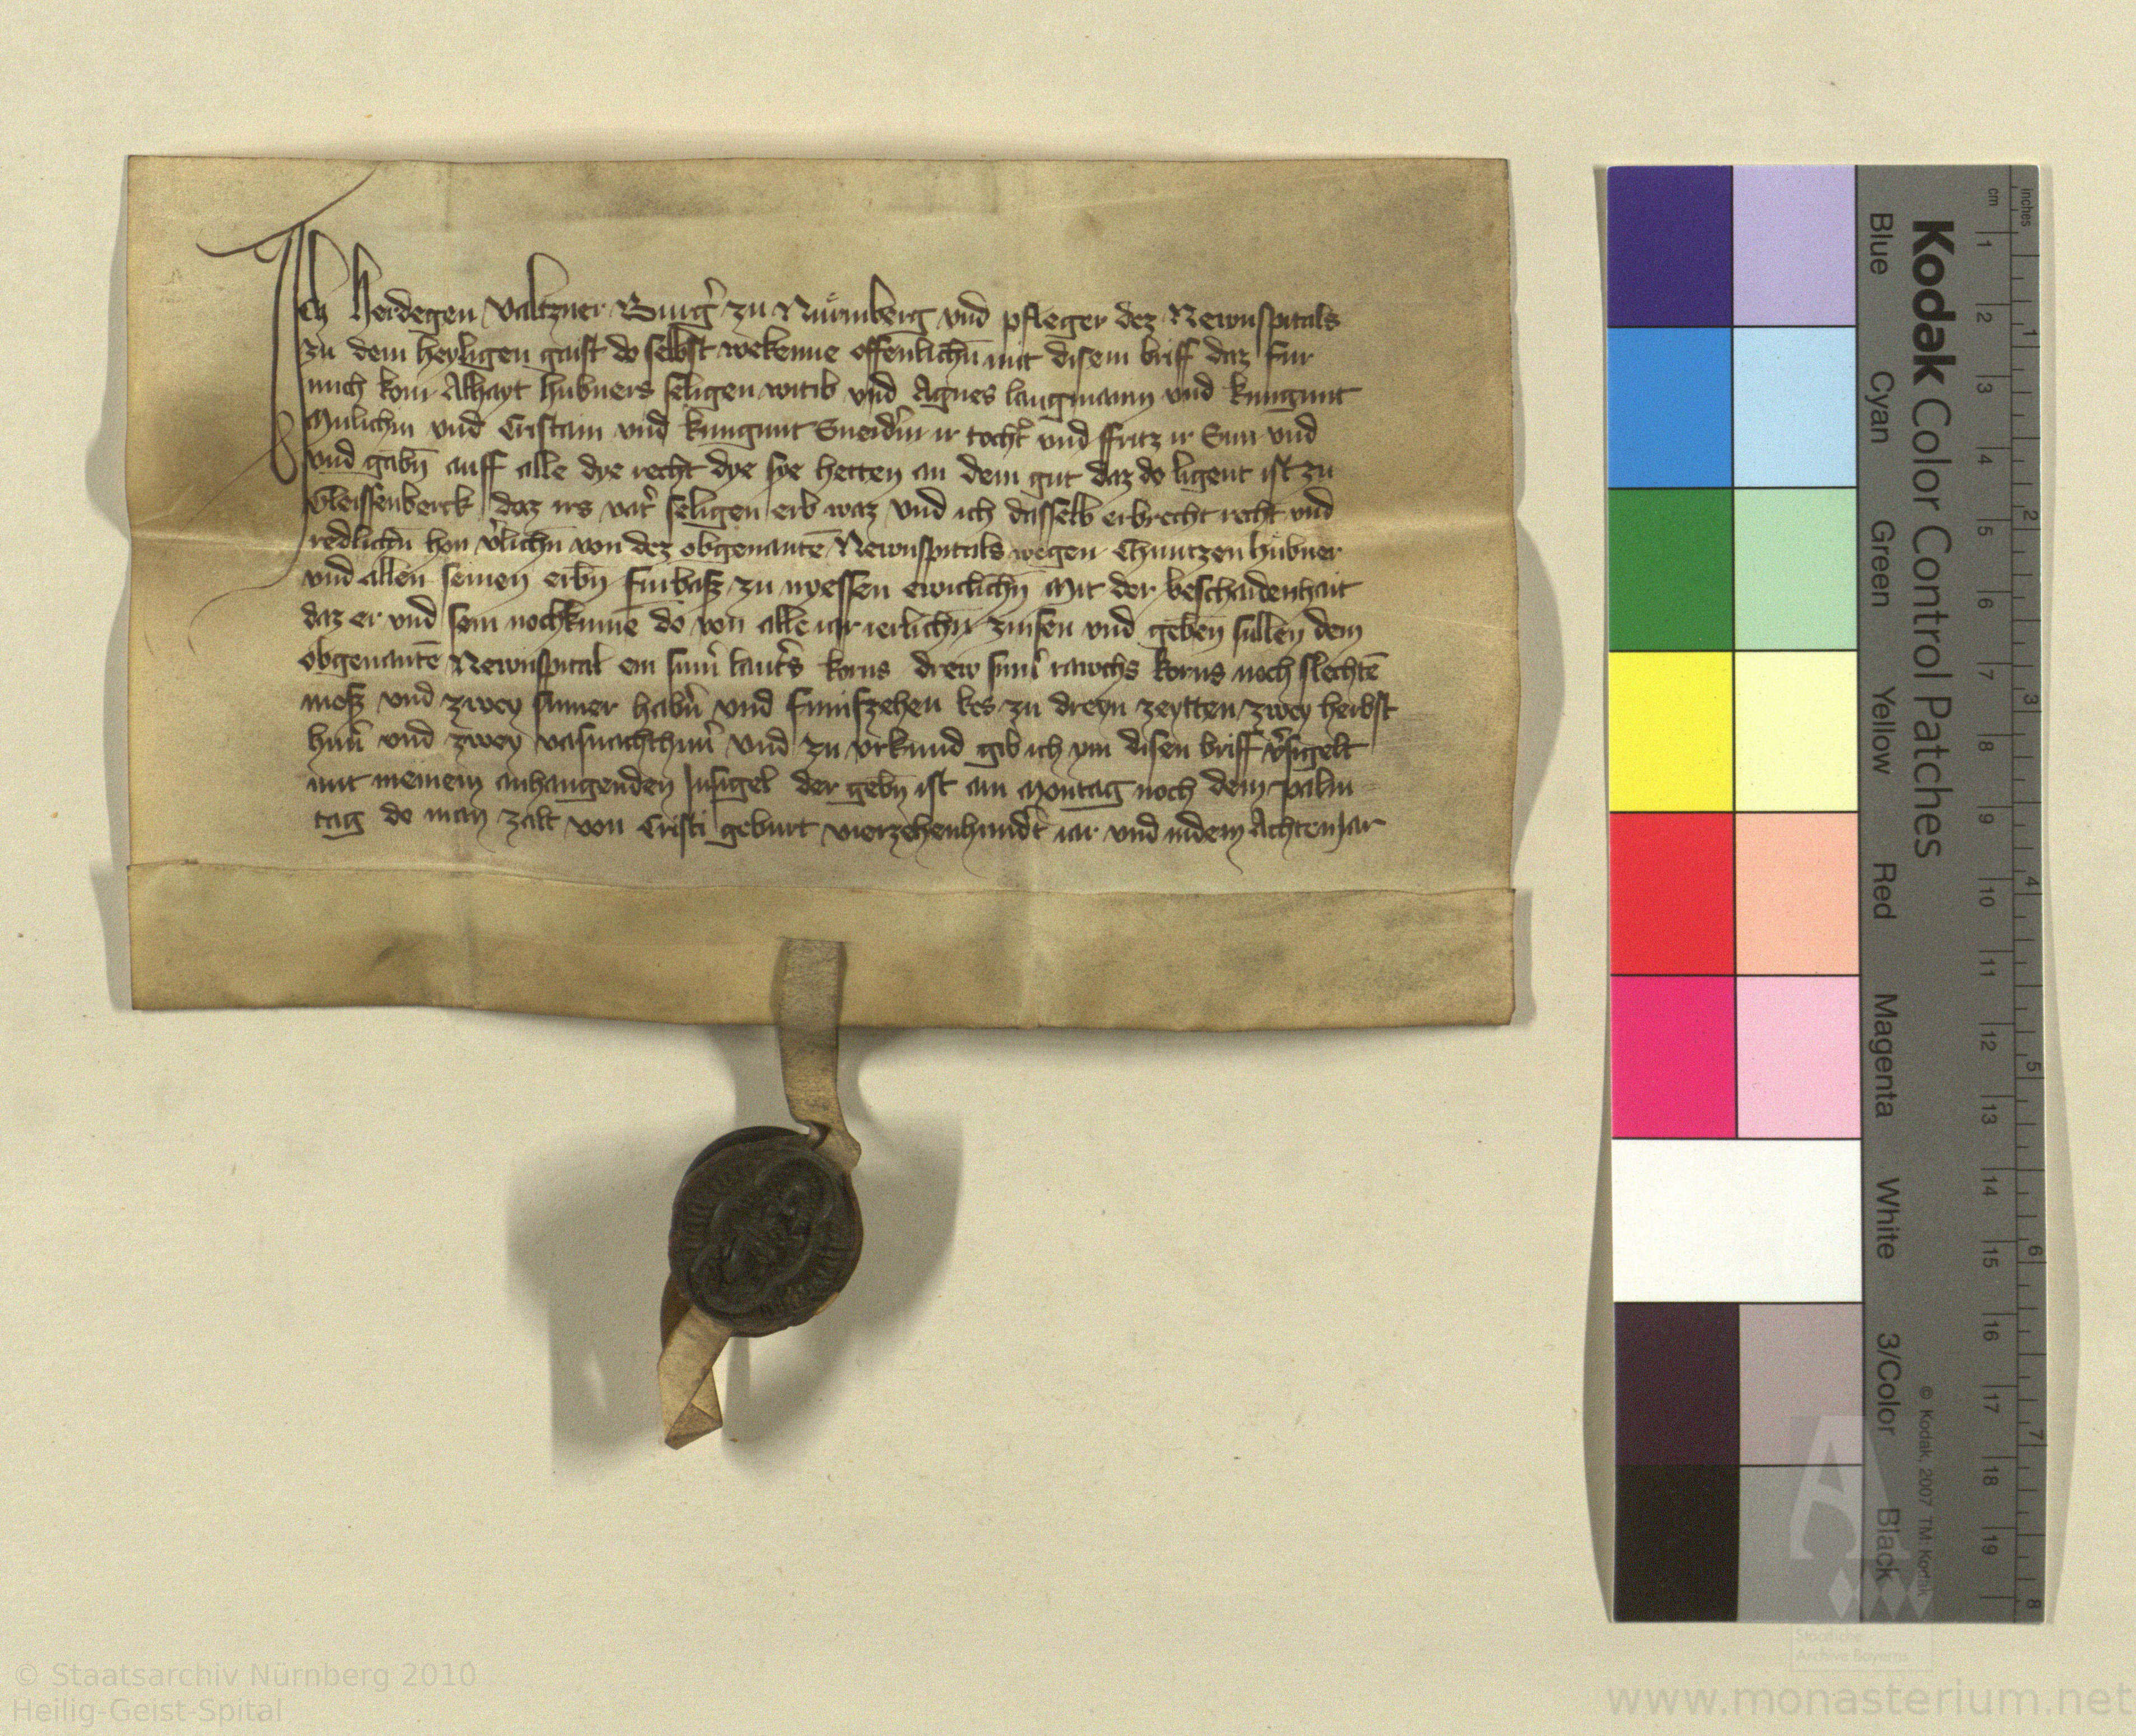 Ich Herdegen valtzner Burg̉ zu Nůrmberg vnd pfleger dez Newnspitals
zu dem heyligen gaist do selbst wekenne offenlichn̄ mit disem briff daz fur
mich kom Alhayt hubners seligen witib vnd Agnes langmanin vnd kungunt
Mulichin vnd Cristain vnd kungunt Sneid̉in ir tocht̉ vnd ffritz ir Sun vnd
vnd gabn̄ auff alle dye recht dye sye hetten an dem gut daz do ligent ist zu
Gleissenberck daz irs vat̉ seligen erb waz vnd ich dasselb erbrecht recht vnd
redlichn̄ hon v̉lichn̄ von dez obgenantē Newnspitals wegen Chuntzen hubner
vnd allen seinen erbn̄ furbasz zu nyessen ewiclichn̄ Mit der beschaidenhait
daz er vnd sein nochkumē do von alle iar ierlichn̄ zinsen vnd geben sullen dem
obgenantē Newnspital ein sum̉ laut̉s korns drew sum̉ rawchs korns noch slechtē
mosz vnd zwey sumer habn̉ vnd funfzehen kes zu dreyn zeytten zwey herbst
hun̉ vnd zwey vasnachthun̉ vnd zu vrkund gib ich ym disen briff v̉sigelt
mit meinem anhangenden Insigel der gebn̄ ist am Montag noch dem palm
tag do man zalt von Cristi geburt vierzehenhund̉t iar vnd indem Achten Jar
Kodak Color Control Patches
Blue Cyan Green Yellow Red Magenta White 3/Color Black
© Kodak, 2007 TM: Kodak
cm 1 2 3 4 5 6 7 8 9 10 11 12 13 14 15 16 17 18 19
inches 1 2 3 4 5 6 7 8
Staatliche
Archive Bayerns
© Staatsarchiv Nürnberg 2010
Heilig-Geist-Spital
www.monasterium.net